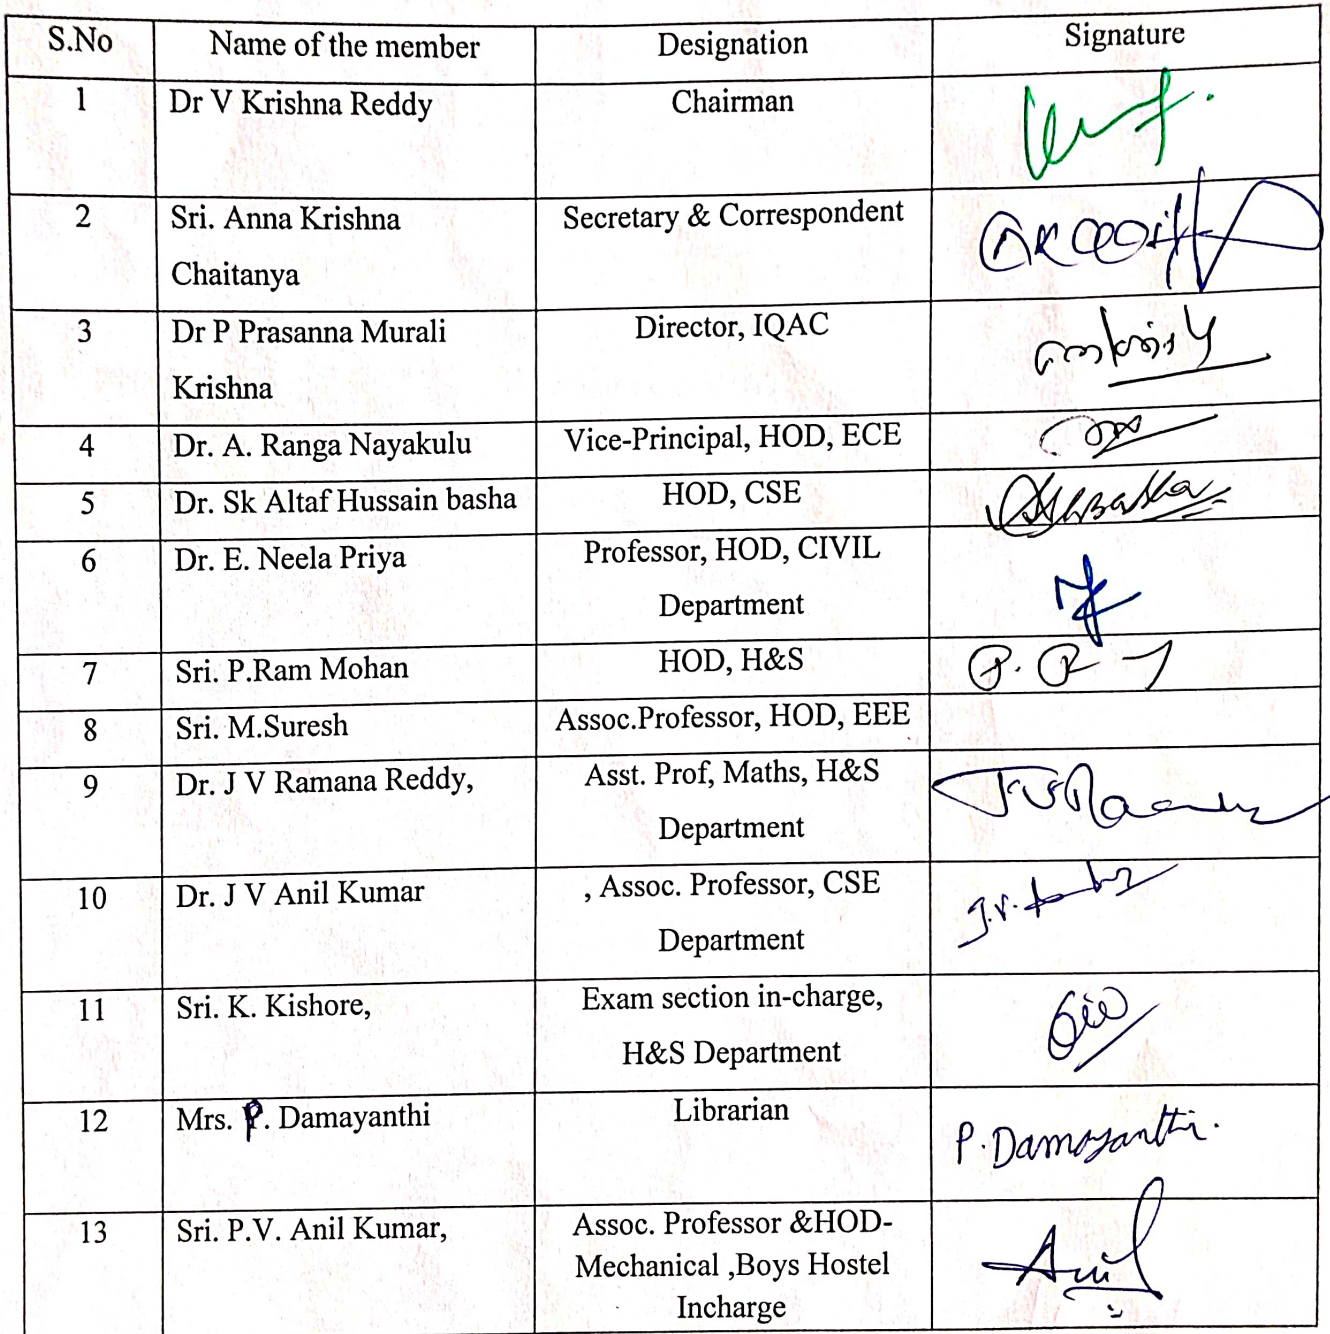 S.No Name of the member Designation Signature
1 Dr V Krishna Reddy Chairman
2 Sri. Anna Krishna Secretary & Correspondent
Chaitanya
3 Dr P Prasanna Murali Director, IQAC
Krishna
4 Dr. A. Ranga Nayakulu Vice-Principal, HOD, ECE
5 Dr. Sk Altaf Hussain basha HOD, CSE
6 Dr. E. Neela Priya Professor, HOD, CIVIL
Department
7 Sri. P.Ram Mohan HOD, H&S
8 Sri. M.Suresh Assoc.Professor, HOD, EEE
9 Dr. J V Ramana Reddy, Asst. Prof, Maths, H&S
Department
10 Dr. J V Anil Kumar , Assoc. Professor, CSE
Department
11 Sri. K. Kishore, Exam section in-charge,
H&S Department
12 Mrs. P. Damayanthi Librarian P. Damayanthi.
13 Sri. P.V. Anil Kumar, Assoc. Professor &HOD- Anil
Mechanical ,Boys Hostel
Incharge